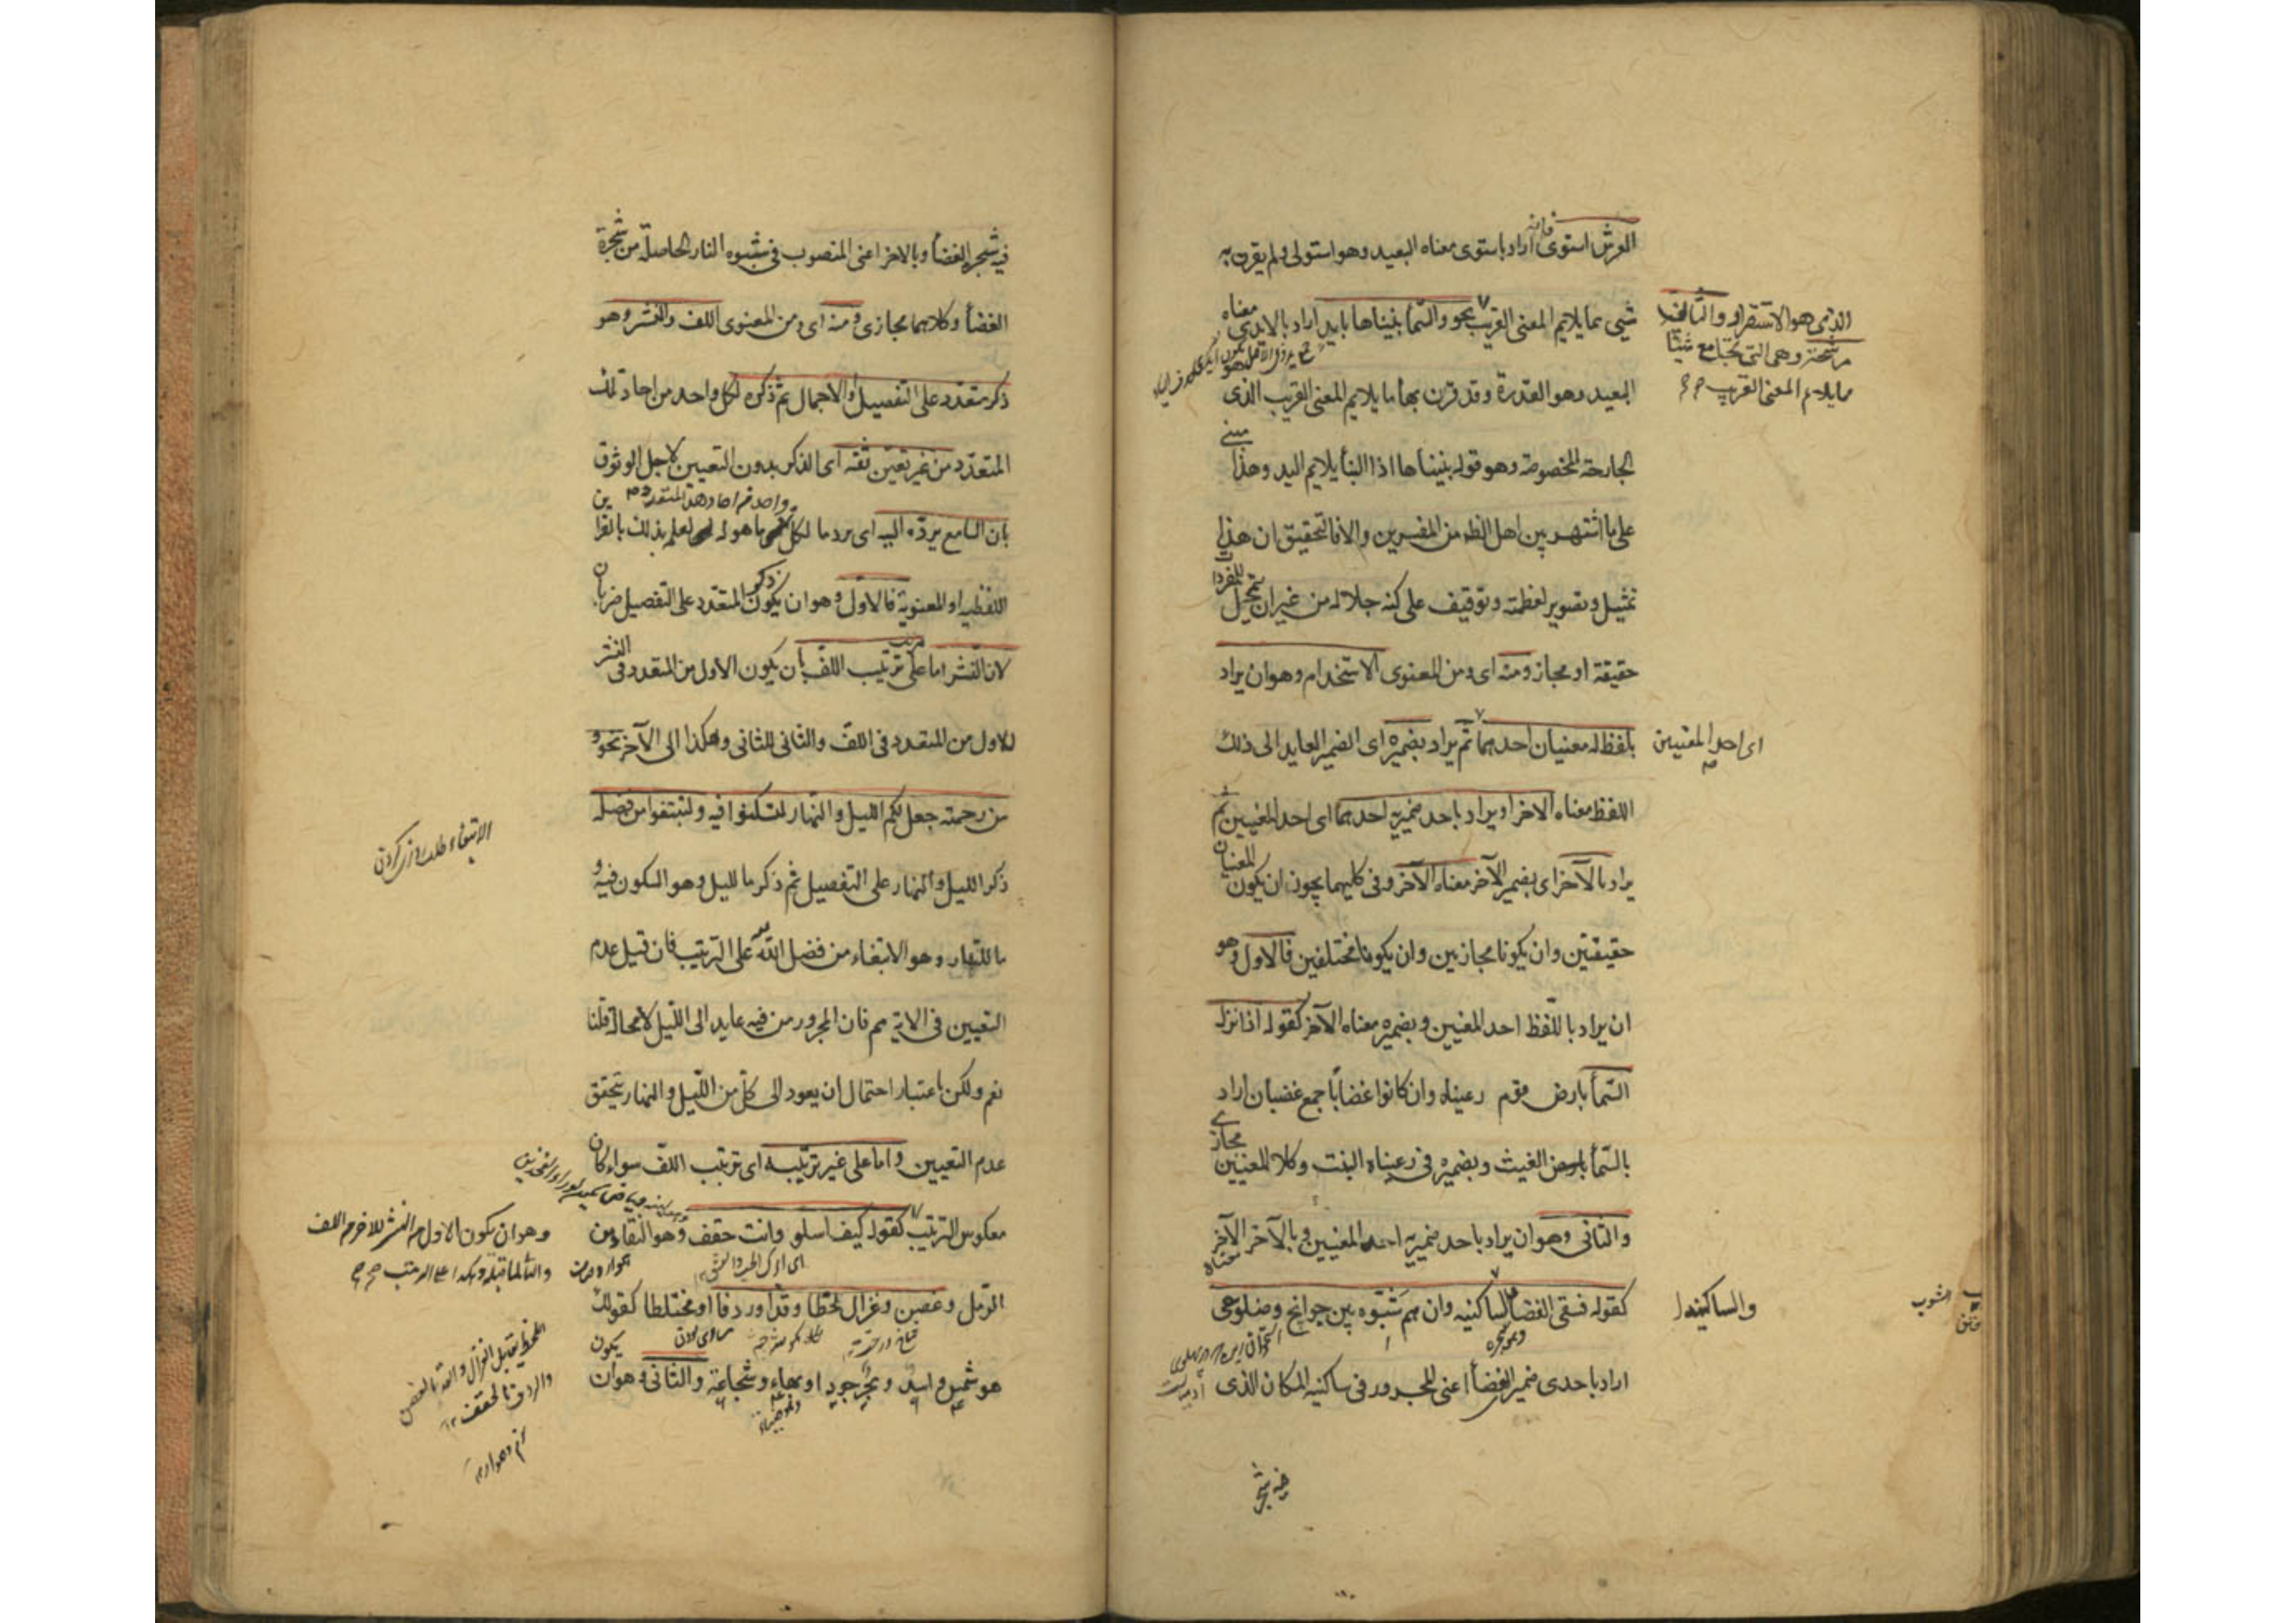 العرش استوى فانه اراد باستوى معناه البعيد وهو استولى ولم يقرن به
شيئ مما يلايم المعنى القريب نحو والسمأ بنيناها بايد اراد بالايدى معناه
البعيد وهو القدرة وقد قرن بها ما يلايم المعنى القريب الذى هو
الجارحة المخصوصة وهو قوله بنيناها اذا البنأ يلايم اليد وهذا مبنى
على ما اشتهر بين اهل الظ من المفسرين والا فالتحقيق ان هذا
تمثيل وتصوير لعظمته وتوقيف على كنه جلاله من غير ان تمحل للمفردات
حقيقة او مجاز ومنه اى ومن المعنوى الاستخدام وهو ان يراد
بلفظ له معنيان احدهما ثم يراد بضميره اى الضمير العايد الى ذلك
اللفظ معناه الاخر او يراد باحد ضميريه احدهما اى احد المعنيين ثم
يراد بالآخر اى بضمير الآخر معناه الآخر وفى كليهما يجوز ان يكون المعنيان
حقيقتين وان يكونا مجازيين وان يكونا مختلفين فالاول وهو
ان يراد باللفظ احد المعنيين وبضميره معناه الآخر كقوله اذا نزل
السمأ بارض قوم رعيناه وان كانوا غضابا جمع غضبان اراد
بالسمأ الغيث وبضميره فى رعيناه النبت وكلا المعنيين مجازى
والثانى وهو ان يراد باحد ضميريه احد المعنيين وبالآخر الآخر معناه
كقوله فسقى الغضا والساكنيه وان هم شبّوه بين جوانح وضلوعى
اراد باحدى ضمير الغضأ اعنى المجرور فى ساكنيه المكان الذى
الذى هو الاستقرار والثانية
مرشحة وهى التى تجامع شيئا
مما يلايم المعنى القريب
اى احد المعنيين
والساكنيه
فيه شجر
فيه شجرة الغضأ وبالاخر اعنى المنصوب فى شبّوه النار الحاصلة من شجرة
الغضأ وكلاهما مجازى ومنه اى ومن المعنوى اللف والنشر وهو
ذكر متعدد على التفصيل او الاجمال ثم ذكره لكل واحد من احاد ذلك
المتعدد من غير تعيين ثقة اى الذكر بدون التعيين لاجل الوثوق
بان السامع يرده اليه اى يرد ما لكل واحد من احاد هذا المتعدد ما هو له لعلمه بذلك بالقراين
اللفظية او المعنوية فالاول وهو ان يكون ذكر المتعدد على التفصيل ضربان
لان النشر اما على ترتيب اللف بان يكون الاول من المتعدد فى النشر
للاول من المتعدد فى اللف والثانى للثانى وهكذا الى الآخر نحو و
من رحمته جعل لكم الليل والنهار لتسكنوا فيه ولتبتغوا من فضله
ذكر الليل والنهار على التفصيل ثم ذكر ما لليل وهو السكون فيه و
ما للنهار وهو الابتغاء من فضل الله على الترتيب فان قيل عدم
التعيين فى الاية مم فان المجرور من فيه عايد الى الليل لا محالة قلنا
نعم ولكن باعتبار احتمال ان يعود الى كل من الليل والنهار يتحقق
عدم التعيين واما على غير ترتيبه اى ترتيب اللف سواء كان
معكوس الترتيب كقوله كيف اسلو وانت حقف وهو النقا من
الرمل وغصن وغزال لحظا وقدا وردفا او مختلطا كقولك
هو شمس واسد وبحر جودا وبهاء وشجاعة والثانى وهو ان يكون
الابتغاء طلب روزى كردن
وهو ان يكون الاول من النشر للاخر من اللف
والثانى لما قبله وهكذا على الترتيب
اللحظ يقابل الغزال والقد بالغصن
والردف بالحقف